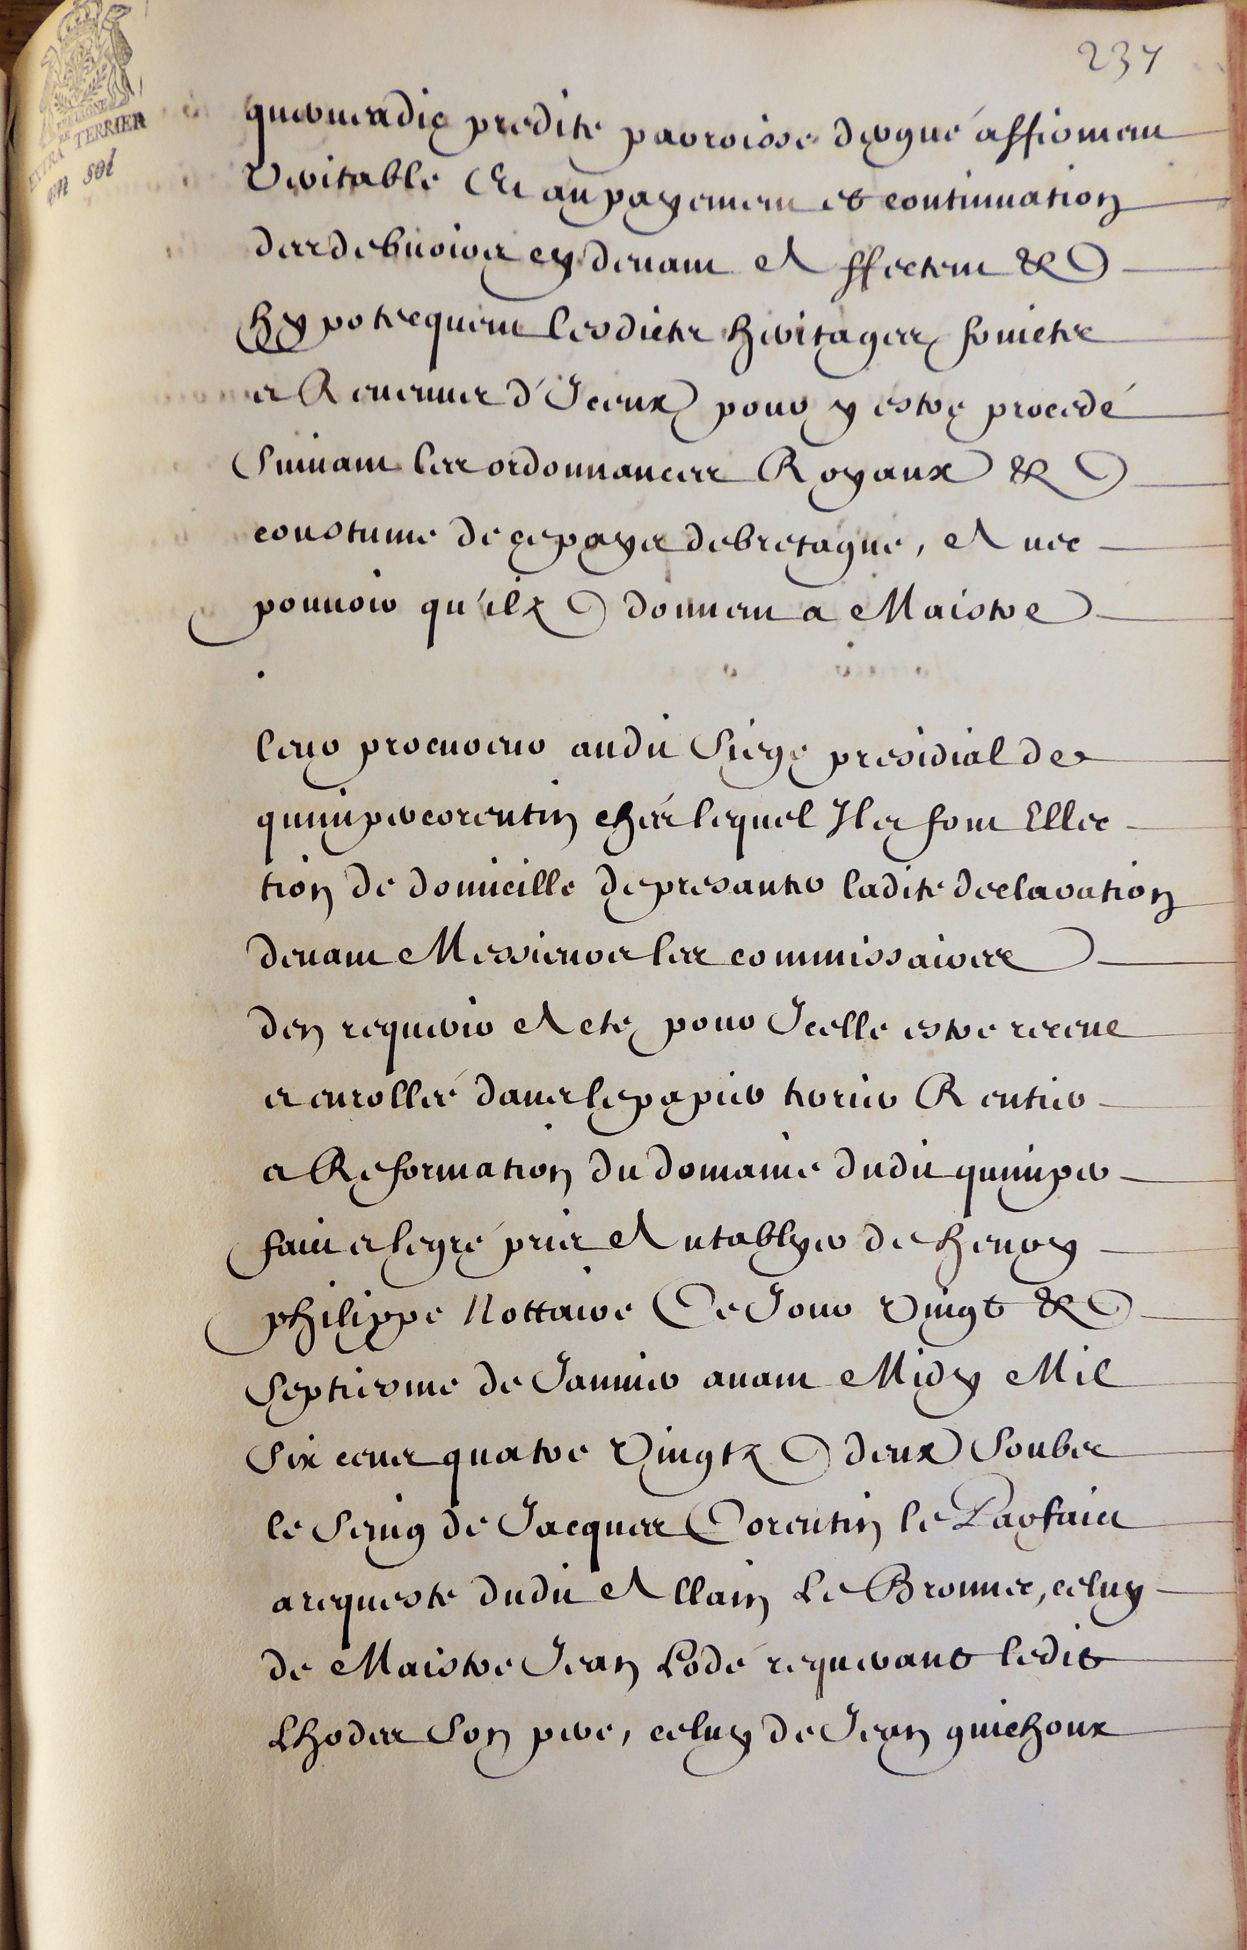 237
BRETAGNE
EXTRA DE TERRIER
un sol
predite parroisse d'ergué affirment
veritable Et au payement et continuation
des debuoirs cy deuant Affectent &
hypotecquent lesdicts heritages fonictz
et Reuenus d'Iceux pour y estre procedé
Suiuant les ordonnances Royaux &
coustume de ce pays de bretagne, Auec
pouuoir qu'ilz donnent a Maistre
leur procureur audit Siege presidial de
quimpercorentin chés lequel Ils font Ellec
tion de domicille de presanter ladite declaration
deuant Messieurs les commissaires
d'en requerir Acte pour Icelle estre receue
et enrollée dans le papier terrier Rentier
et Reformation du domaine dudit quimper
fait et le gré pris Au tablyer de henry
philippe Nottaire Ce Jour vingt &
Septiesme de Januier auant Midy Mil
Six cens quatre vingtz deux Soubz
le Seing de Jacques Corentin le Parfait
a requeste dudit Allain Le Bronnec, celuy
de Maistre Jean Lodé requerant ledit
Lhodes Son pere, celuy de Jean guichoux